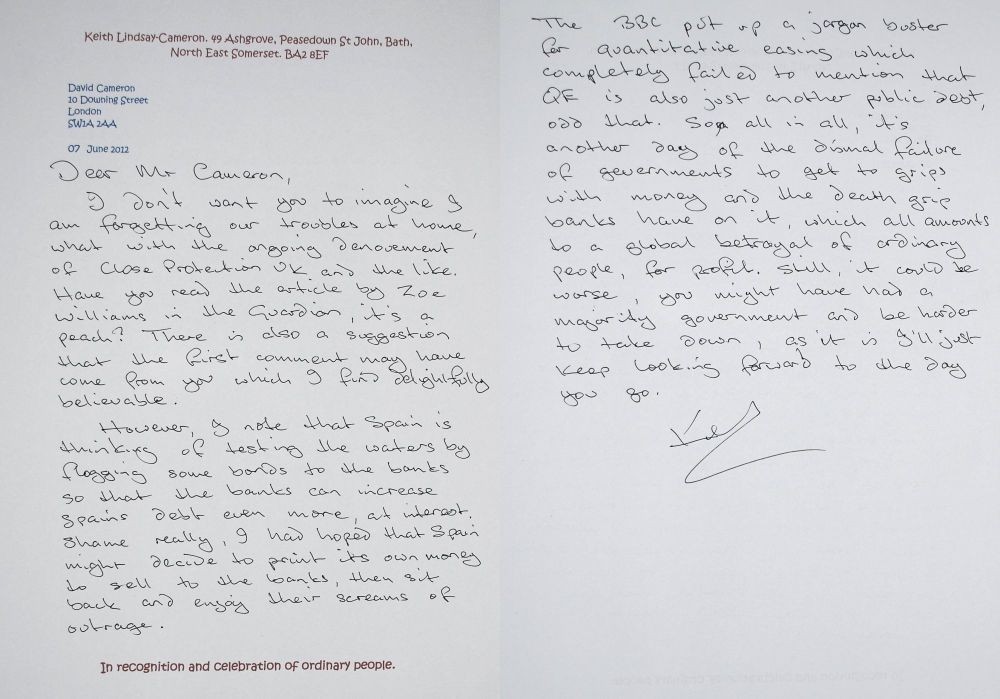 Keith Lindsay-Cameron. 49 Ashgrove, Peasedown St John, Bath,
North East Somerset. BA2 8EF
David Cameron
10 Downing Street
London
SW1A 2AA
07 June 2012
Dear Mr Cameron,
I don't want you to imagine I
am forgetting our troubles at home,
what with the ongoing denovement
of Close Protection UK and the like.
Have you read the article by Zoe
Williams in the Guardian, it's a
peach? There is also a suggestion
that the first comment may have
come from you which I find delightfully
believable.
However, I note that Spain is
thinking of testing the waters by
flogging some bonds to the banks
so that the banks can increase
Spains debt even more, at interest.
Shame really, I had hoped that Spain
might decide to print its own money
to sell to the banks, then sit
back and enjoy their screams of
outrage.
In recognition and celebration of ordinary people.
The BBC put up a jargon buster
for quantitative easing which
completely failed to mention that
QE is also just another public debt,
odd that. So all in all, it's
another day of the dismal failure
of governments to get to grips
with money and the death grip
banks have on it, which all amounts
to a global betrayal of ordinary
people, for profit. Still, it could be
worse, you might have had a
majority government and be harder
to take down, as it is I'll just
keep looking forward to the day
you go.